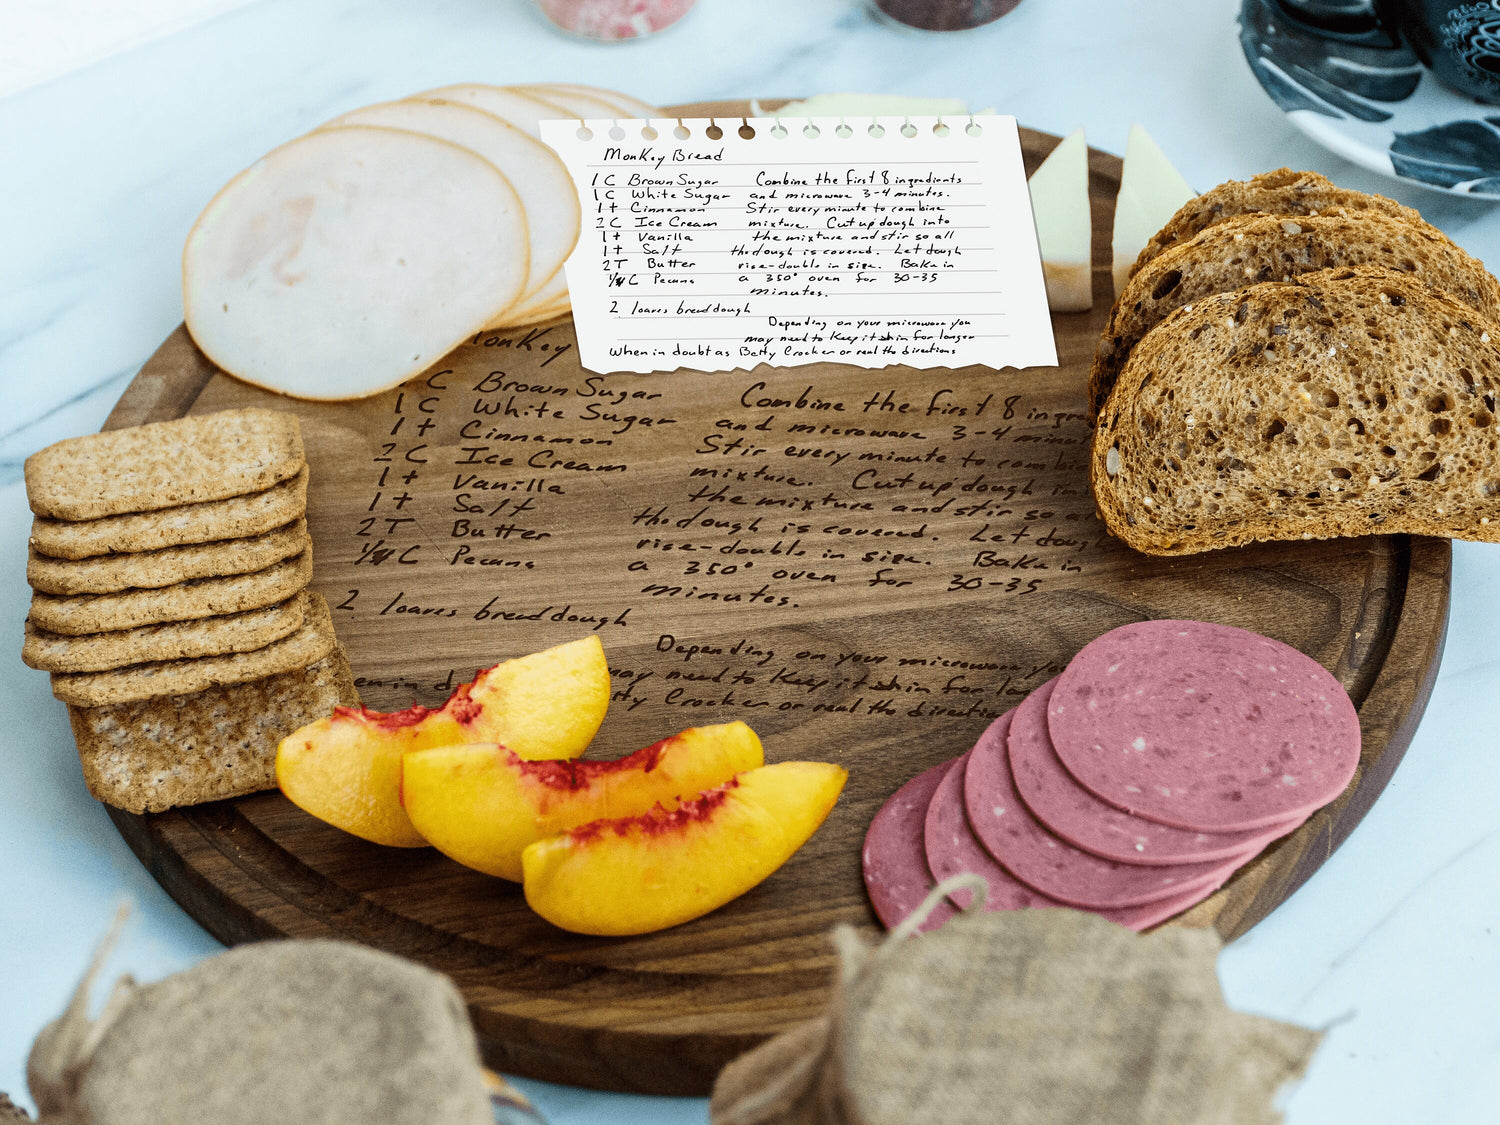 Monkey Bread
1 C Brown Sugar Combine the first 8 ingredients
1 C White Sugar and microwave 3-4 minutes.
1 t Cinnamon Stir every minute to combine
2 C Ice Cream mixture. Cut up dough into
1 t Vanilla the mixture and stir so all
1 t Salt the dough is covered. Let dough
2 T Butter rise-double in size. Bake in
C Pecans a 350° oven for 30-35
minutes.
2 loaves bread dough
Depending on your microwave you
may need to Keep it in for longer
When in doubt as Betty Crocker or read the directions
onKey
C Brown Sugar Combine the first 8 ingre
1 C White Sugar and microwave 3-4 minu
1 t Cinnamon Stir every minute to combin
2 C Ice Cream mixture. Cut up dough in
1 t Vanilla the mixture and stir so a
1 t Salt the dough is covered. Let doug
2 T Butter rise-double in size. Bake in
C Pecans a 350° oven for 30-35
minutes.
2 loaves bread dough
Depending on your microwave yo
may need to Keep it in for lo
en in d tty Crocker or read the directio